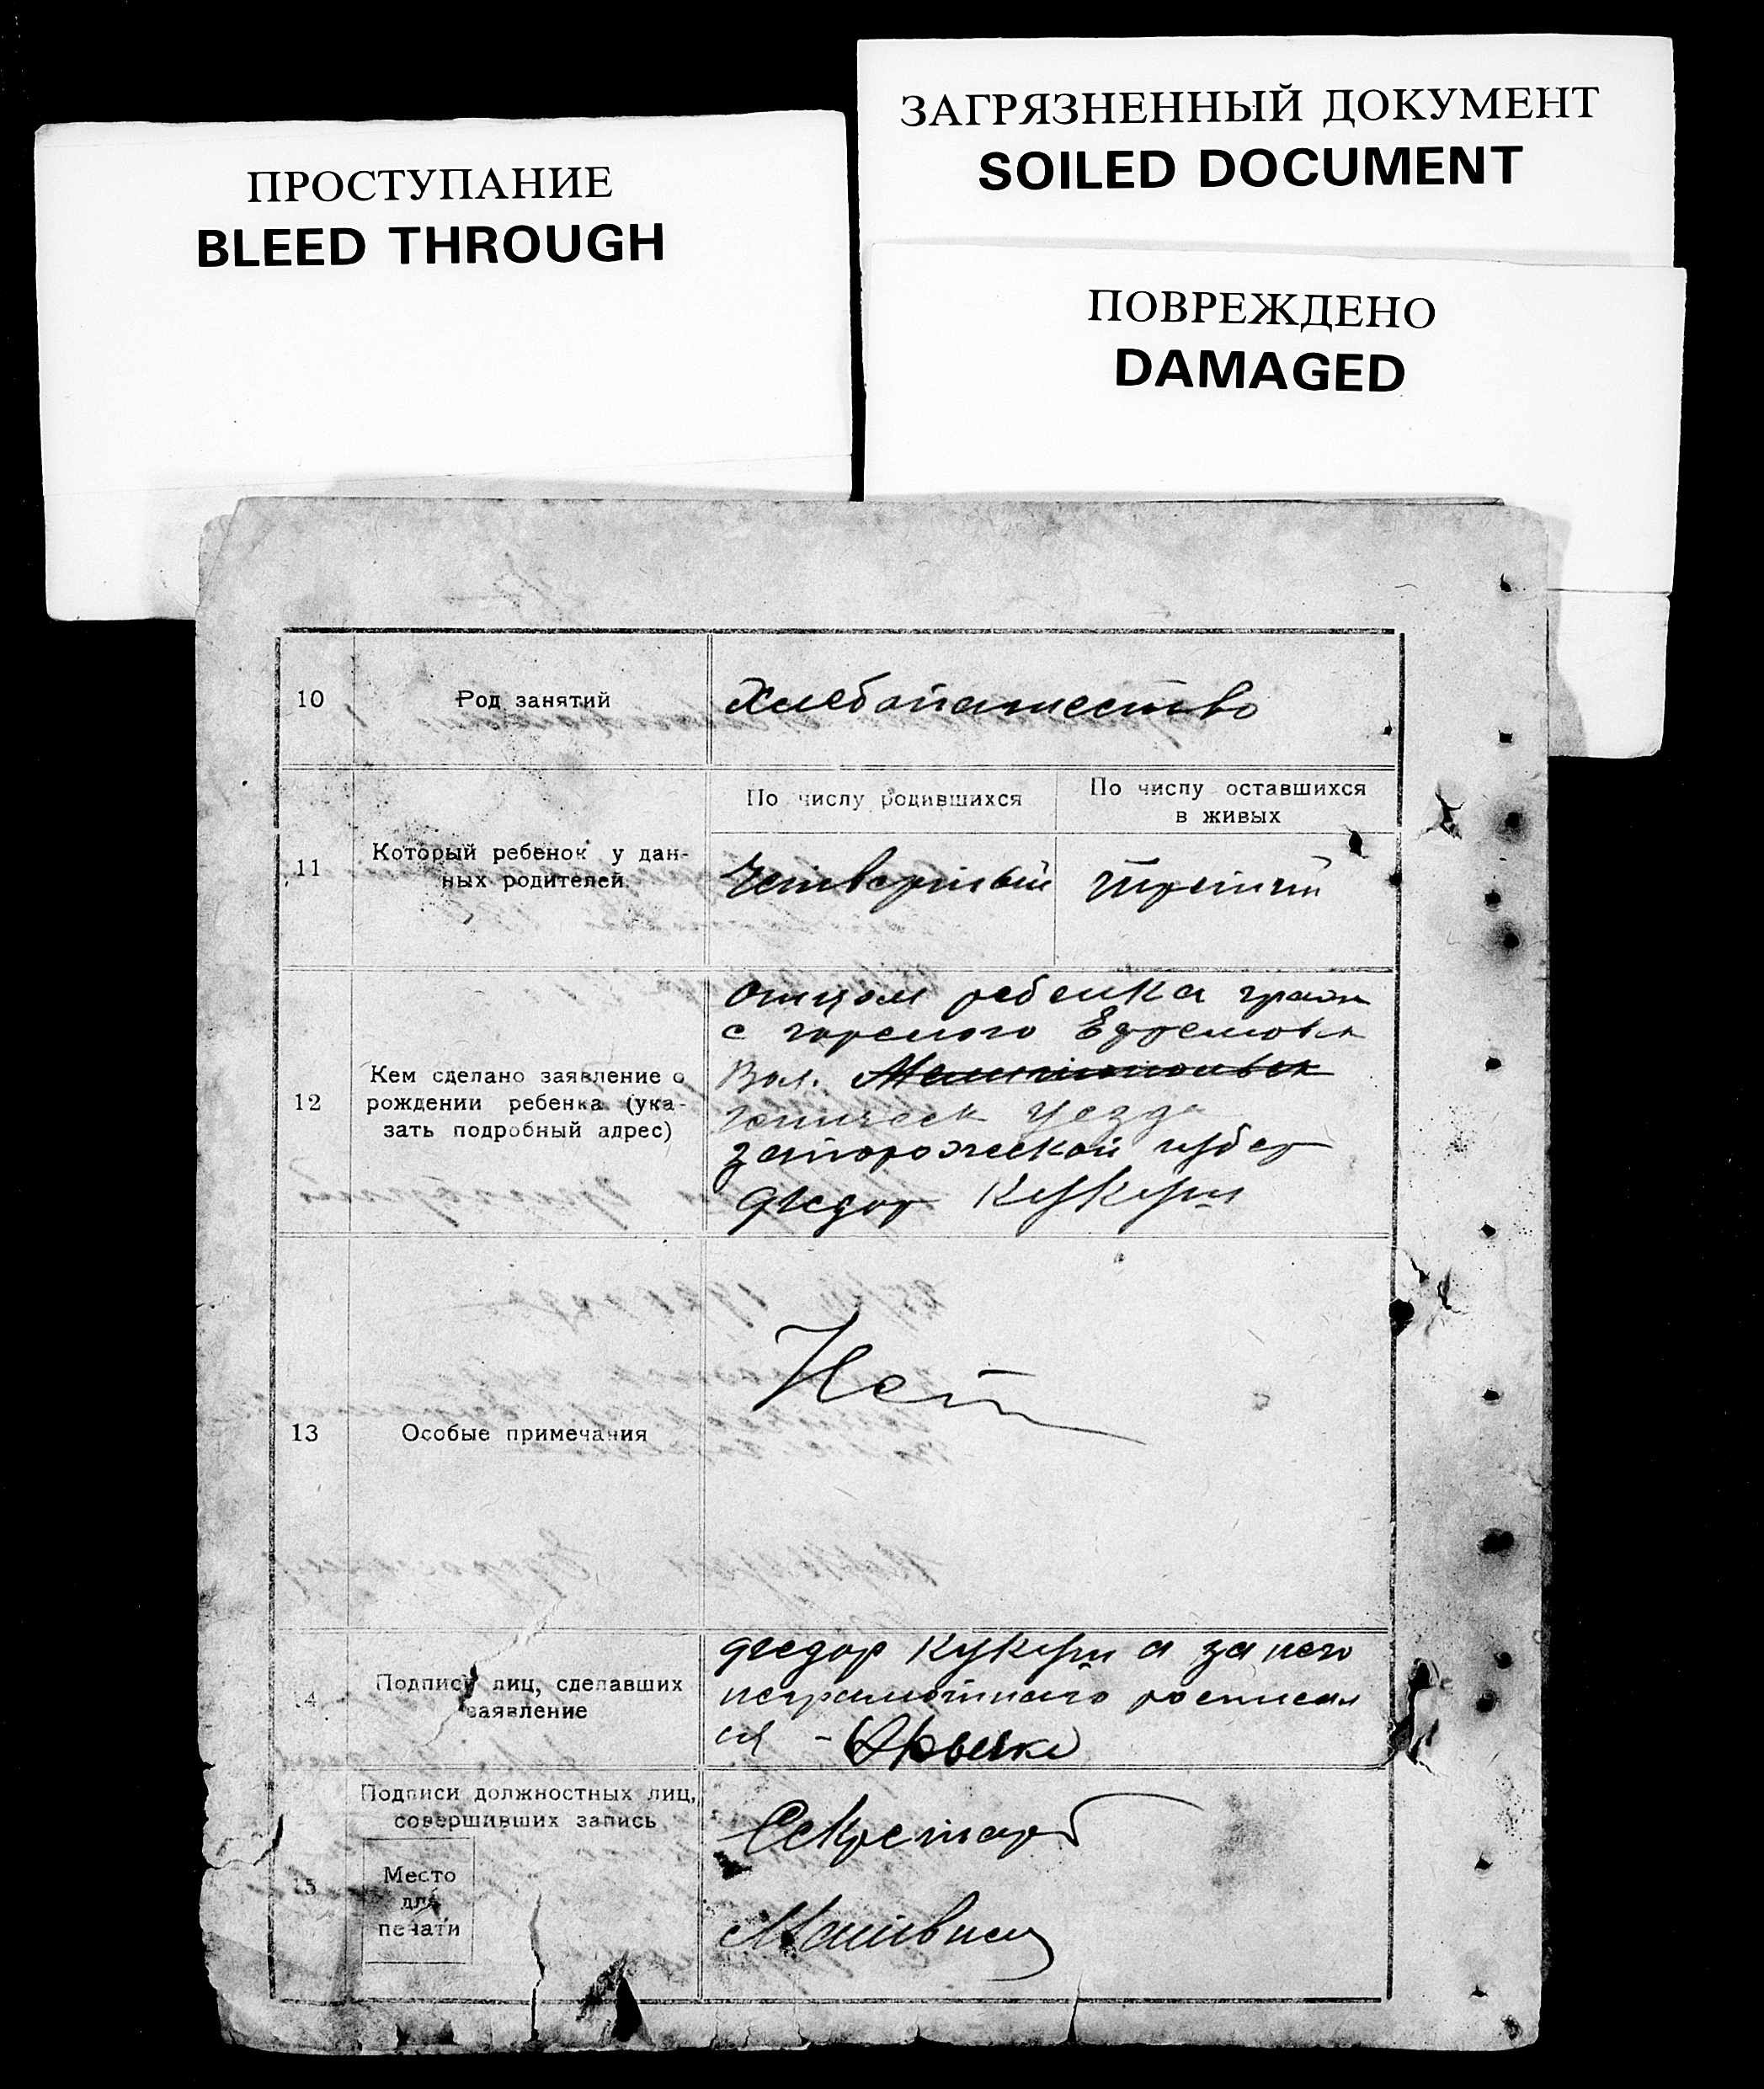 ПРОСТУПАНИЕ
BLEED THROUGH
ЗАГРЯЗНЕННЫЙ ДОКУМЕНТ
SOILED DOCUMENT
ПОВРЕЖДЕНО
DAMAGED
10
Род занятий
Хлебопашество
11
Который ребенок у дан-
ных родителей
По числу родившихся
По числу оставшихся
в живых
Четвертый
Третий
12
Кем сделано заявление о
рождении ребенка (ука-
зать подробный адрес)
Отцом ребенка граж
с Горелого Ефремовск
Вол. Мелитопольск
Геническ уезда
Запорожской губер
Федор
13
Особые примечания
Нет
14
Подписи лиц, сделавших
заявление
Федор а за него
неграмотного росписал
ся -
15
Подписи должностных лиц,
совершивших запись
Место
для
печати
Секретарь